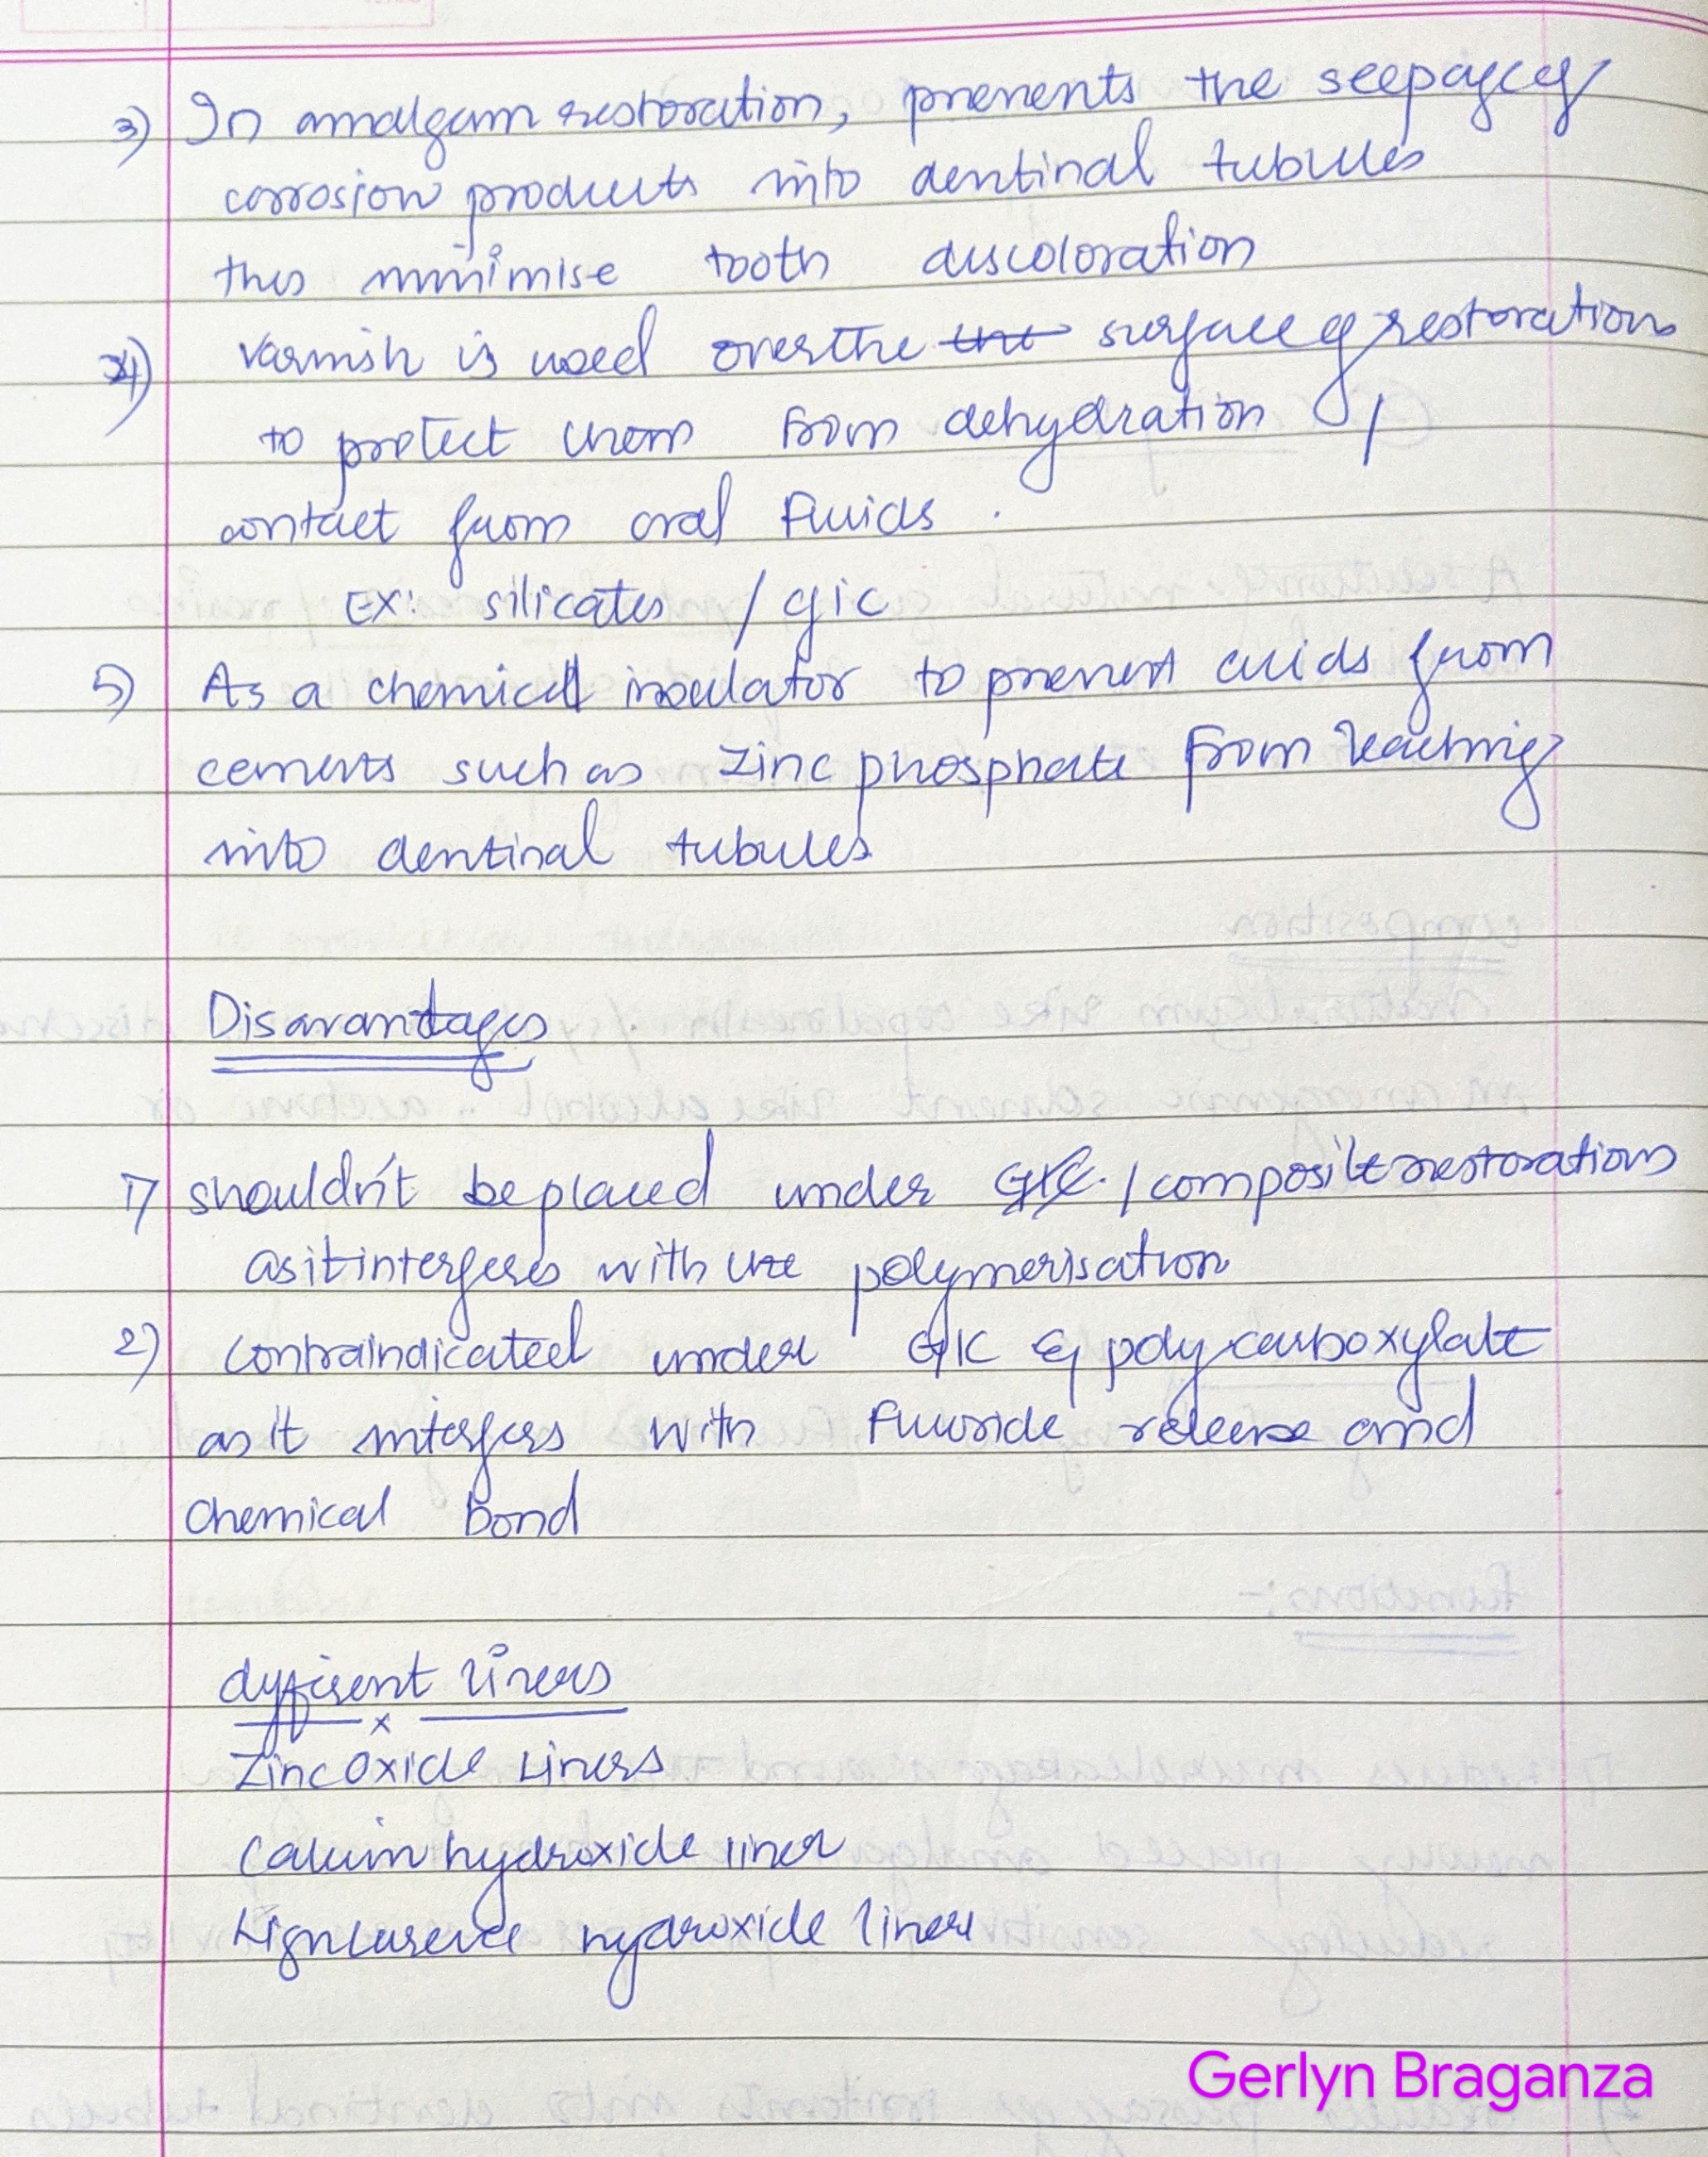 3) In amalgam restoration, prevents the seepage of
corrosion products into dentinal tubules
thus minimise tooth discoloration
4) Varnish is used over the the surface of restorations
to protect them from dehydration /
contact from oral fluids .
EX: silicates / gic
5) As a chemical insulator to prevent acids from
cements such as Zinc phosphate from reaching
into dentinal tubules
Disavantages
1) shouldn't be placed under GIC. / composite restorations
as it interferes with the polymerisation
2) contraindicated under GIC & polycarboxylate
as it interfers with fluoride release and
chemical bond
different liners
x
Zinc oxide Liners
Calcium hydroxide liner
Light cured hydroxide liner
Gerlyn Braganza